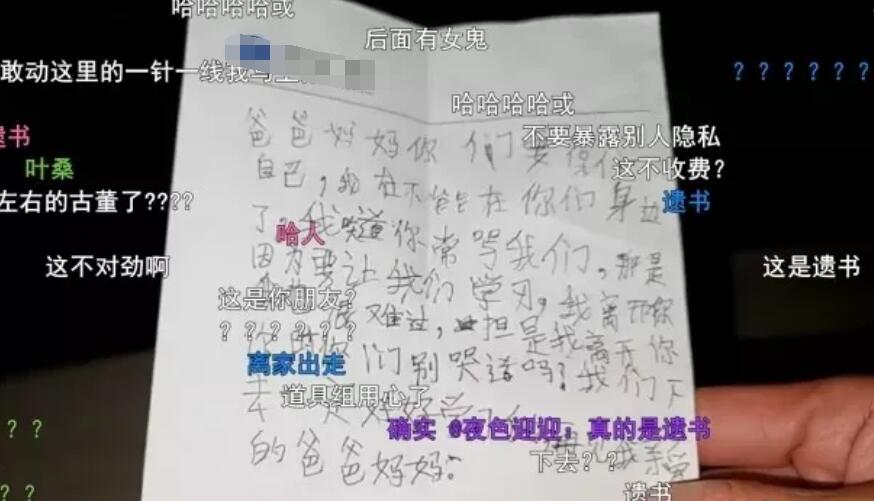 哈哈哈哈或
后面有女鬼
敢动这里的一针一线我
？？？？？？
哈哈哈哈或
遗书
不要暴露别人隐私
叶桑
这不收费？
左右的古董了????
遗书
哈人
这不对劲啊
这是遗书
这是你朋友？
？？？？？？
离家出走
道具组用心了
？？
确实 @夜色迎迎：真的是遗书
下去？？
？？
遗书
爸爸妈妈你们要
自己，我 不能 在你们身边
了，我 道你常骂我们，那是
因为要让我们学习，我离开你
难过，但是我离开你
你 们别哭 吗？我们下
去
的爸爸妈妈。